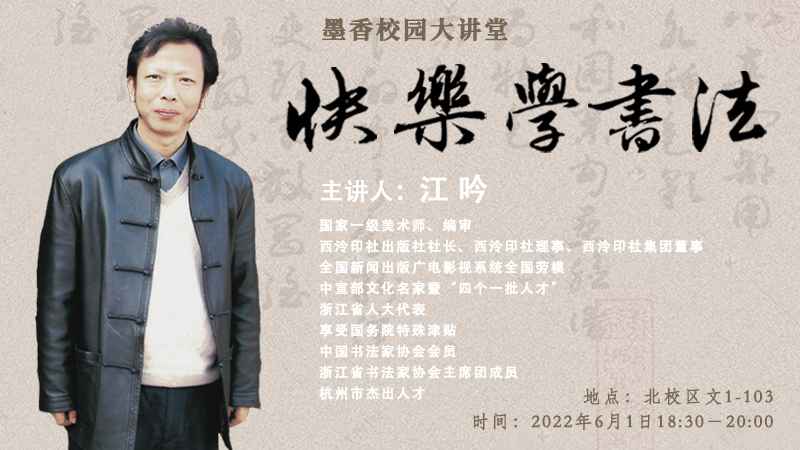 墨香校园大讲堂
快樂學書法
主讲人：江 吟
国家一级美术师、编审
西泠印社出版社社长、西泠印社理事、西泠印社集团董事
全国新闻出版广电影视系统全国劳模
中宣部文化名家暨“四个一批人才”
浙江省人大代表
享受国务院特殊津贴
中国书法家协会会员
浙江省书法家协会主席团成员
杭州市杰出人才
地点：北校区文1-103
时间：2022年6月1日18:30－20:00